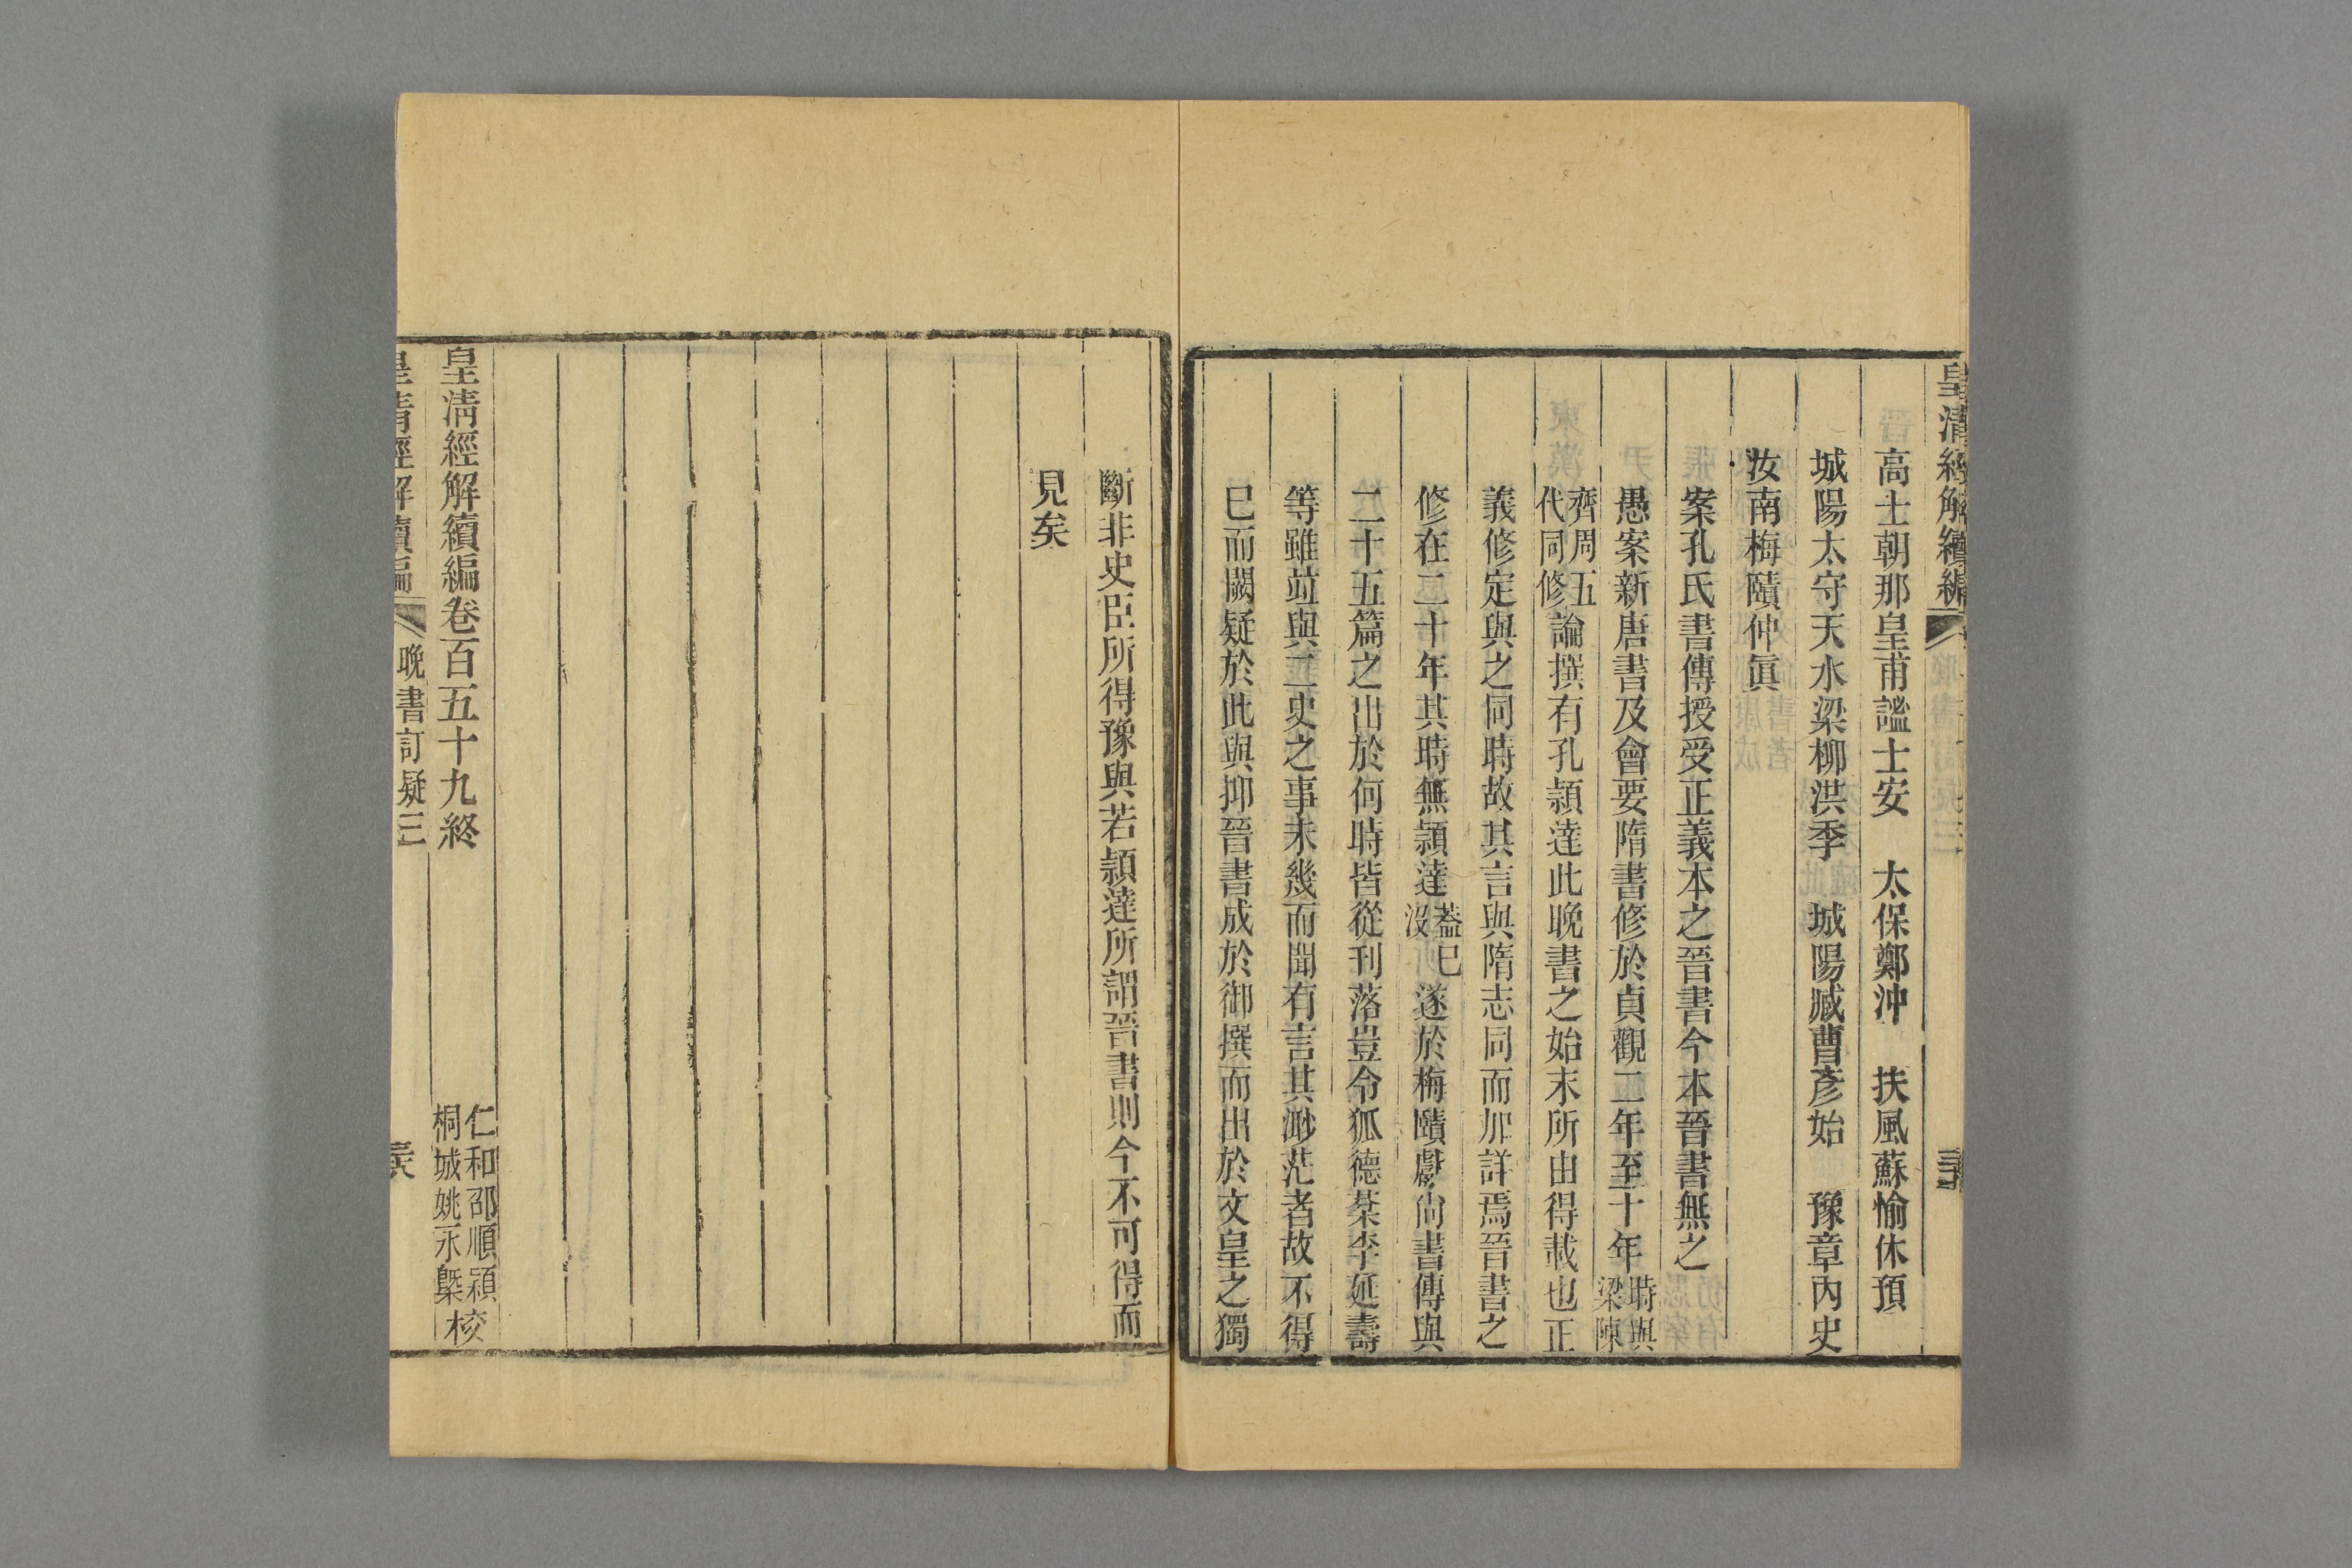 皇清經解續編
高士朝那皇甫謐士安　太保鄭沖　扶風蘇愉休預
城陽太守天水梁柳洪季　城陽臧曹彥始　豫章內史
汝南梅賾仲眞
案孔氏書傳授受正義本之晉書今本晉書無之
愚案新唐書及會要隋書修於貞觀二年至十年時與梁陳
齊周五代同修論撰有孔頴達此晚書之始末所由得載也正
義修定與之同時故其言與隋志同而加詳焉晉書之
修在二十年其時無頴達蓋已沒遂於梅賾獻尚書傳與
二十五篇之出於何時皆從刊落豈令狐德棻李延壽
等雖竝與二史之事未幾而聞有言其渺茫者故不得
已而闕疑於此與抑晉書成於御撰而出於文皇之獨
斷非史臣所得豫與若頴達所謂晉書則今不可得而
見矣
皇清經解續編卷百五十九終
仁和邵順潁桐城姚永㮣校
皇清經解續編
晚書訂疑三